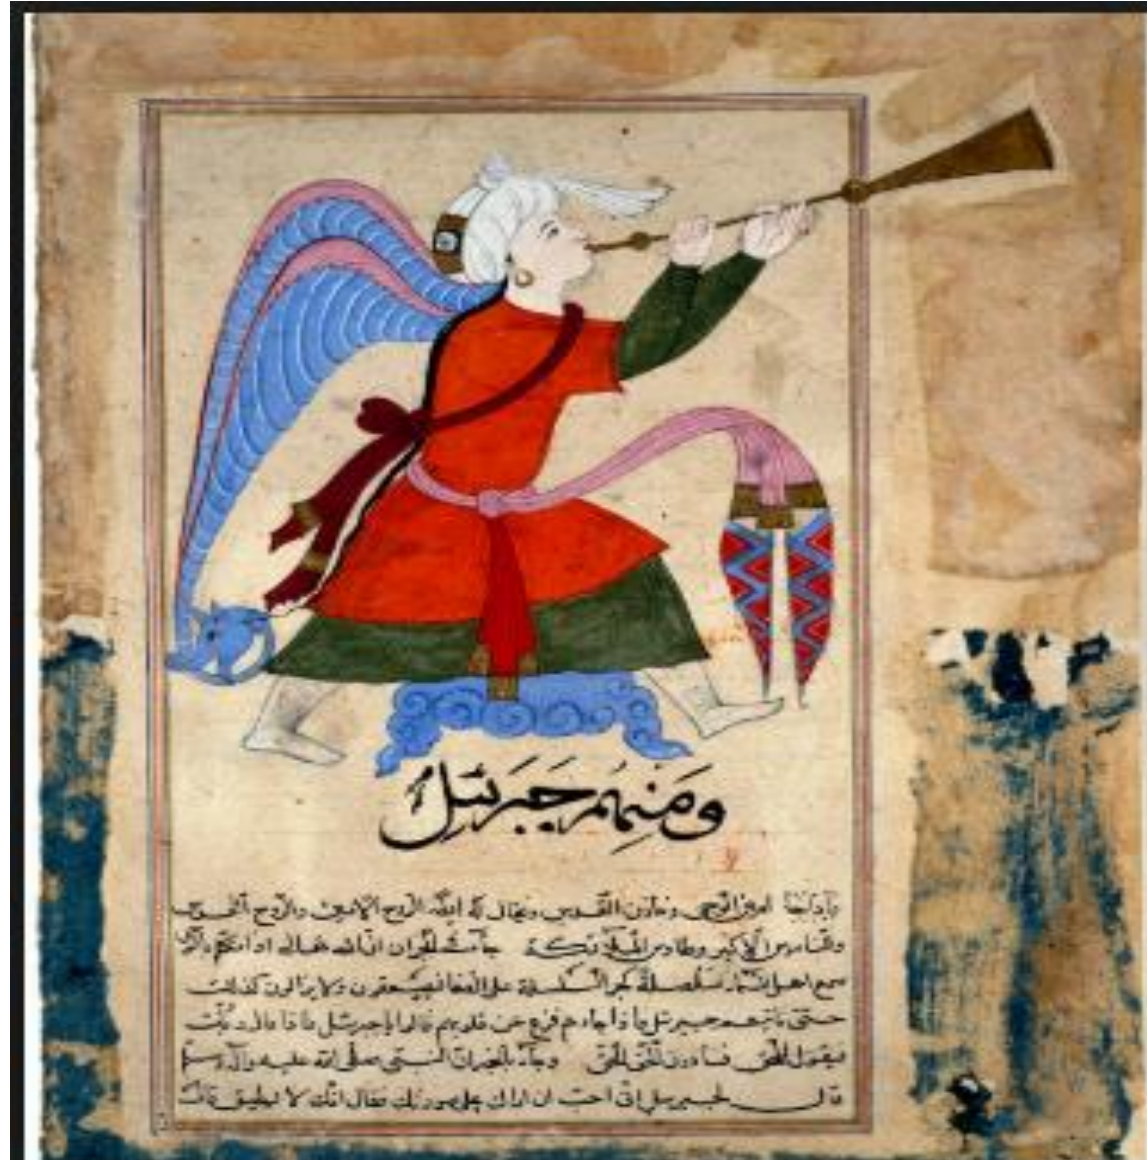 وَمَنِهُم جَبرَئيل
امين الوحي وخازن القدس ويقال له ايضا الروح الامين والروح
الاكبر وطاوس الملائكة جاء في الخبران ان الله تعالى اذا تكلم بالوحي
سمع اهل السماء صلصلة كجر السلسلة على الصفا فيصعقون ولا يزالون كذلك
حتى ياتيهم جبرئيل فاذا جاءهم فزع عن قلوبهم قالوا يا جبرئيل ماذا قال ربك
فيقول الحق فينادون الحق الحق وجاء النبي صلى الله عليه وآله وسلم
قال لجبرئيل اني احب ان اراك على صورتك فقال انك لا تطيق